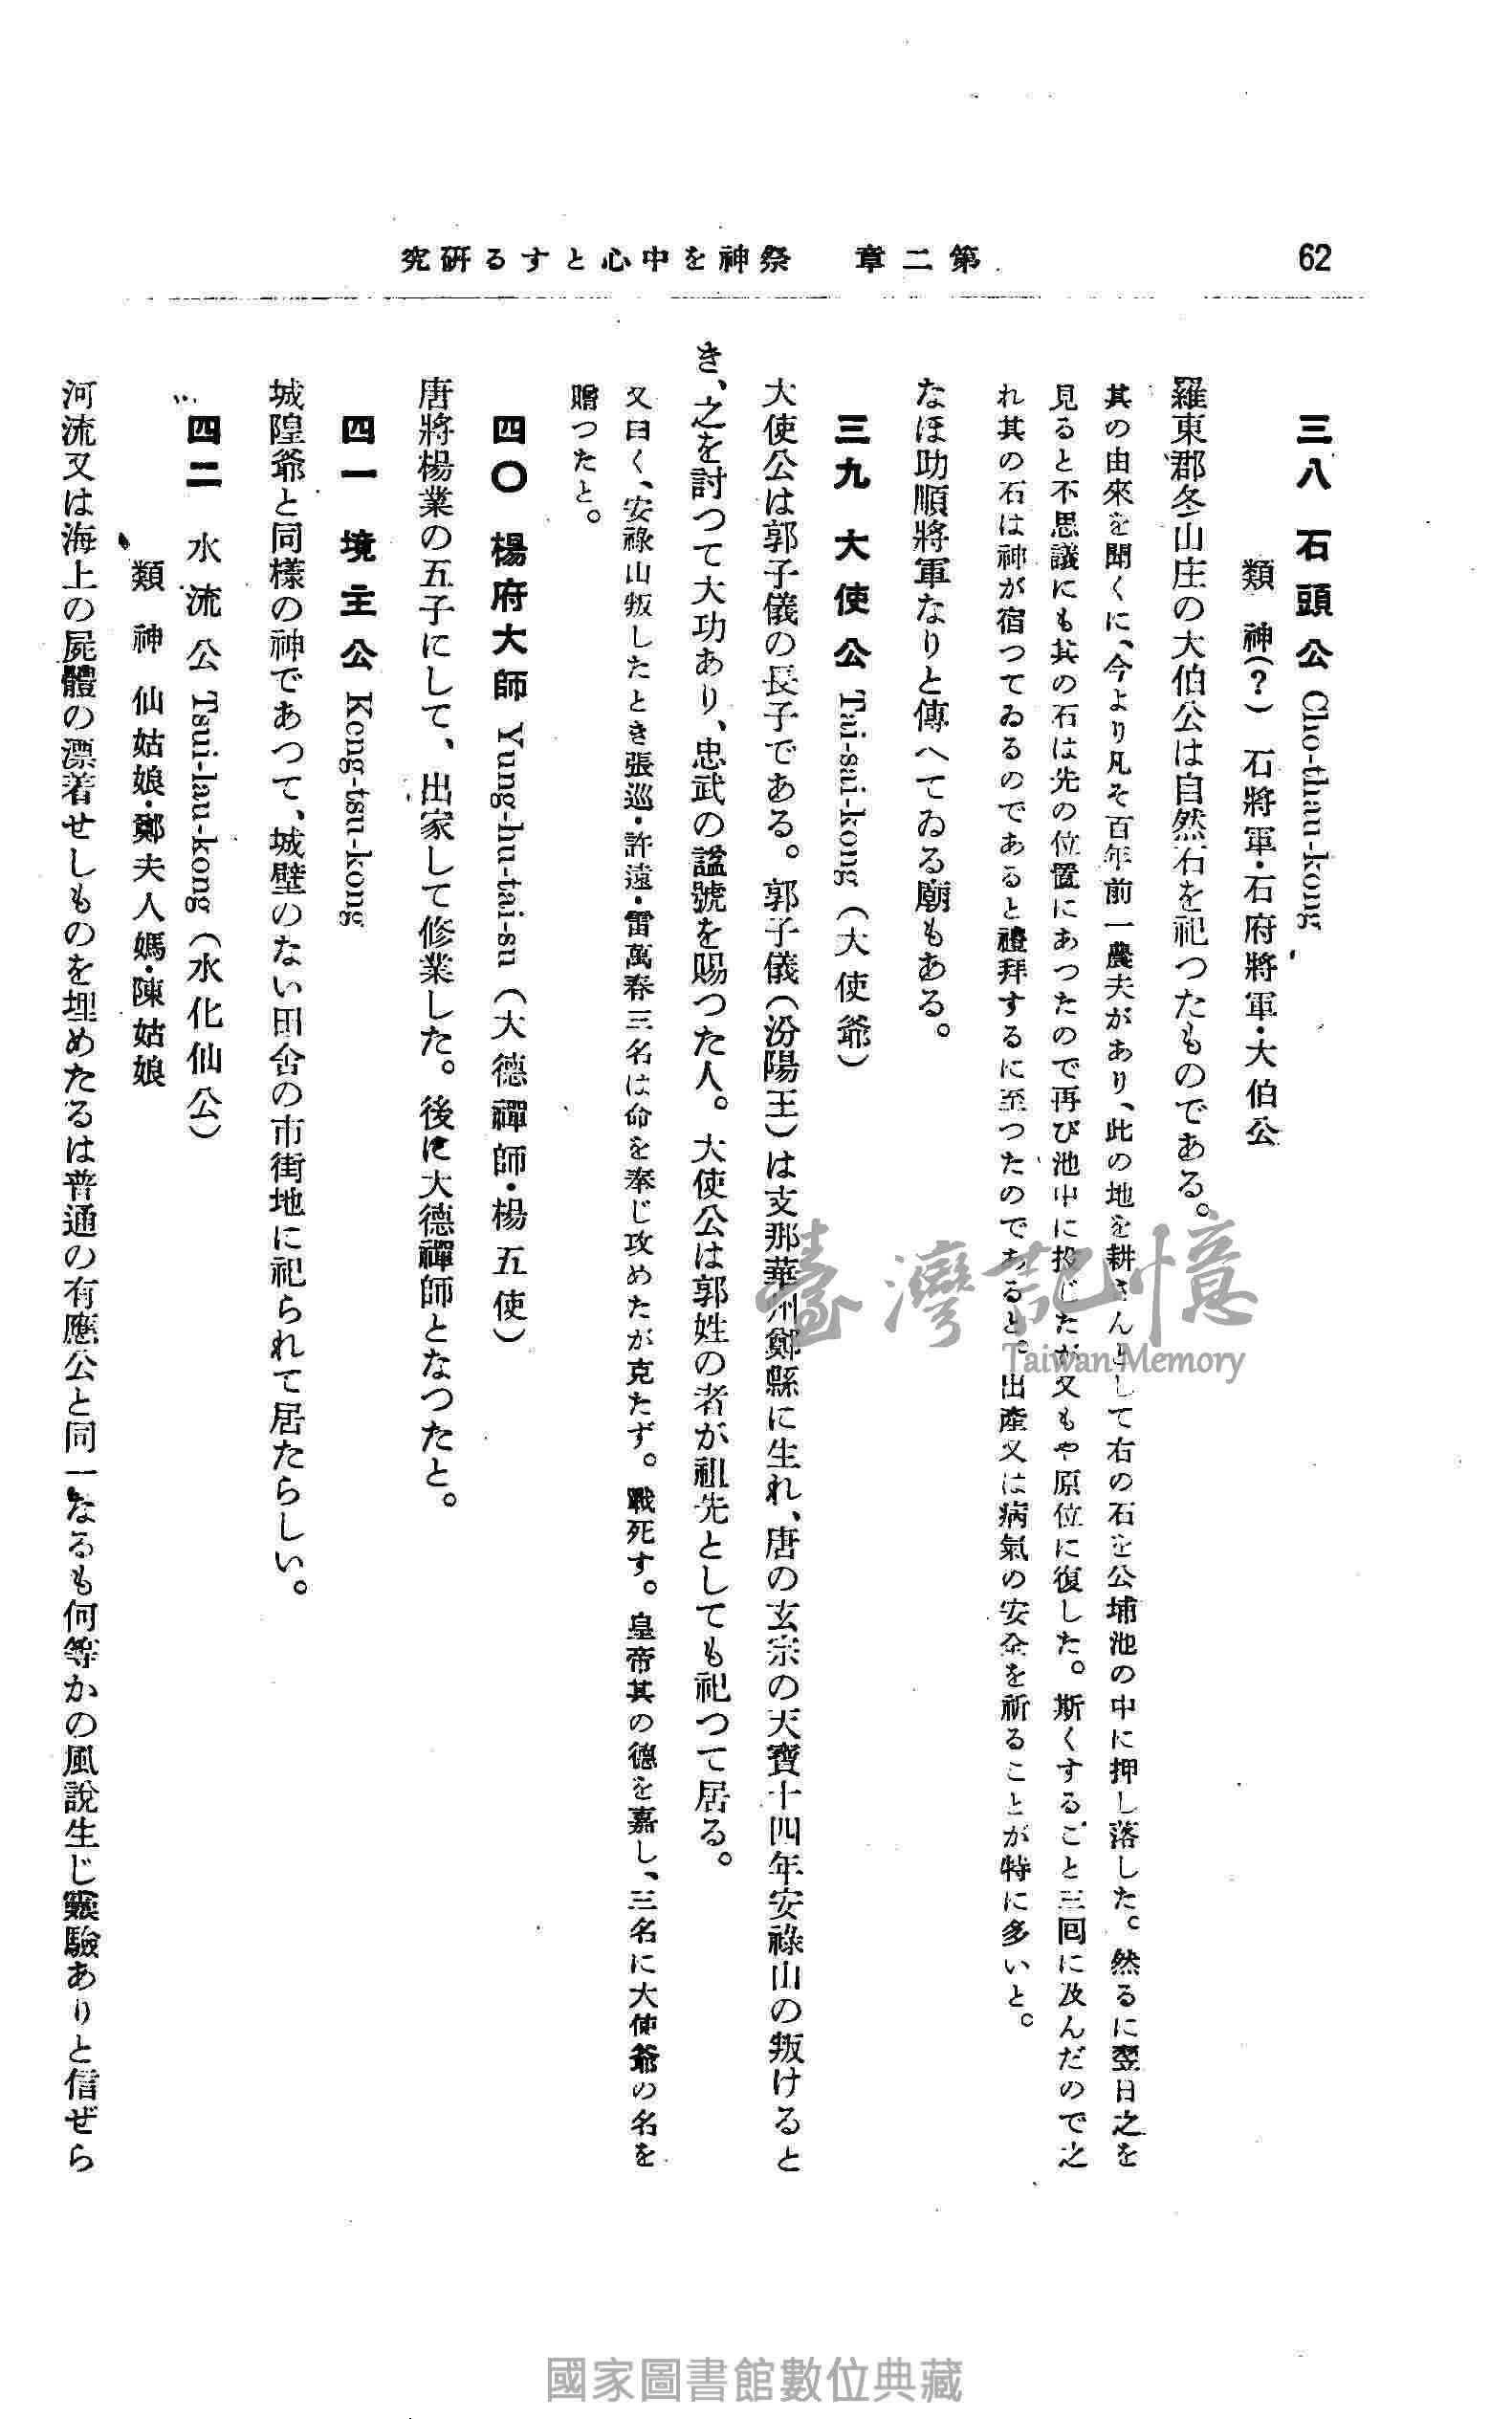 62
第二章　祭神を中心とする硏究
三八　石頭公 Cho-thau-kong
類　神(？)　石將軍・石府將軍・大伯公
羅東郡冬山庄の大伯公は自然石を祀つたものである。
其の由來を聞くに、今より凡そ百年前一農夫があり、此の地を耕さんとして右の石を公埔池の中に押し落した。然るに翌日之を
見ると不思議にも其の石は先の位置にあつたので再び池中に投じたが又もや原位に復した。斯くすること三回に及んだので之
れ其の石は神が宿つてゐるのであると禮拜するに至つたのであると。出產又は病氣の安全を祈ることが特に多いと。
なほ助順將軍なりと傳へてゐる廟もある。
三九　大使公 Tai-sai-kong (大使爺)
大使公は郭子儀の長子である。郭子儀(汾陽王)は支那華州鄭縣に生れ、唐の玄宗の天寶十四年安祿山の叛けると
き、之を討つて大功あり、忠武の謚號を賜つた人。大使公は郭姓の者が祖先としても祀つて居る。
又曰く、安祿山叛したとき張巡・許遠・雷萬春三名は命を奉じ攻めたが克たず。戰死す。皇帝其の德を嘉し、三名に大使爺の名を
贈つたと。
四〇　楊府大師 Yung-hu-tai-su (大德禪師・楊五使)
唐將楊業の五子にして、出家して修業した。後に大德禪師となつたと。
四一　境主公 Keng-tsu-kong
城隍爺と同樣の神であつて、城壁のない田舍の市街地に祀られて居たらしい。
四二　水流公 Tsui-lau-kong (水化仙公)
類　神　仙姑娘・鄭夫人媽・陳姑娘
河流又は海上の屍體の漂着せしものを埋めたるは普通の有應公と同一なるも何等かの風說生じ靈驗ありと信ぜら
臺灣記憶
Taiwan Memory
國家圖書館數位典藏